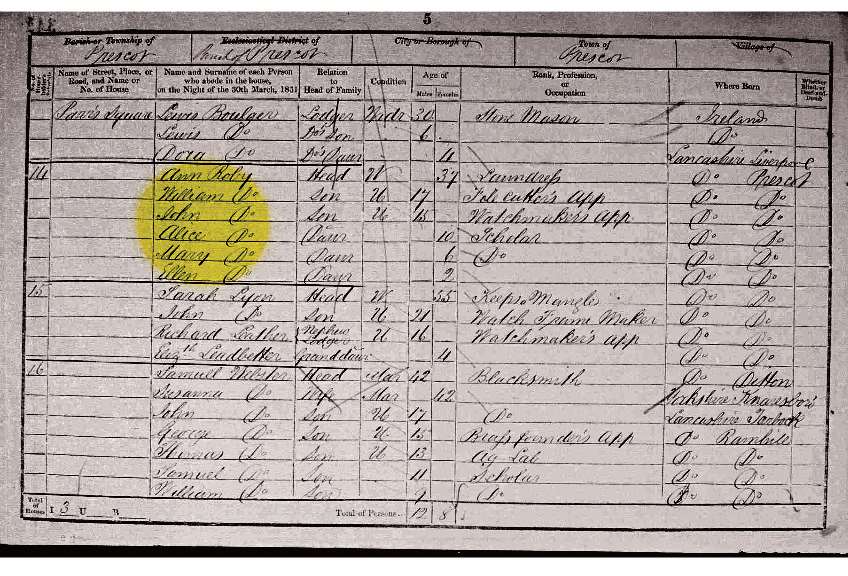 5
Parish or Township of Ecclesiastical District of City or Borough of Town of Village of
Prescot Parish of Prescot Prescot
No. of House Name of Street, Place, or Road, and Name or No. of House Name and Surname of each Person who abode in the house, on the Night of the 30th March, 1851 Relation to Head of Family Condition Age of Males Females Rank, Profession, or Occupation Where Born Whether Blind, or Deaf-and-Dumb
Square Lewis Boulger Lodger Widr 30 Stone Mason Ireland
Lewis Do Do's Son 6 Do
Dora Do Do's Daur 4 Lancashire Liverpool
14 Ann Roby Head W 37 Laundress Do Prescot
William Do Son U 17 App Do Do
John Do Son U 15 Watchmaker's App Do Do
Alice Do Daur 10 Scholar Do Do
Mary Do Daur 6 Do Do Do
Ellen Do Daur 2 Do Do
15 Sarah Lyon Head W 55 Keeps Mangle Do Do
John Do Son U 21 Watch Frame Maker Do Do
Richard Leather Nephew Lodger U 16 Watchmaker's App Do Do
Elizth Leadbetter Granddaur 4 Do Do
16 Samuel Webster Head Mar 42 Blacksmith Do Ditton
Susanna Do Wife Mar 42 Yorkshire Knaresboro
John Do Son U 17 Do Lancashire Tarbock
George Do Son U 15 Brassfounder's App Do Rainhill
Thomas Do Son U 13 Ag Lab Do Do
Samuel Do Son 11 Scholar Do Do
William Do Son 9 Do Do Do
Total of Houses I 3 U B Total of Persons 12 8